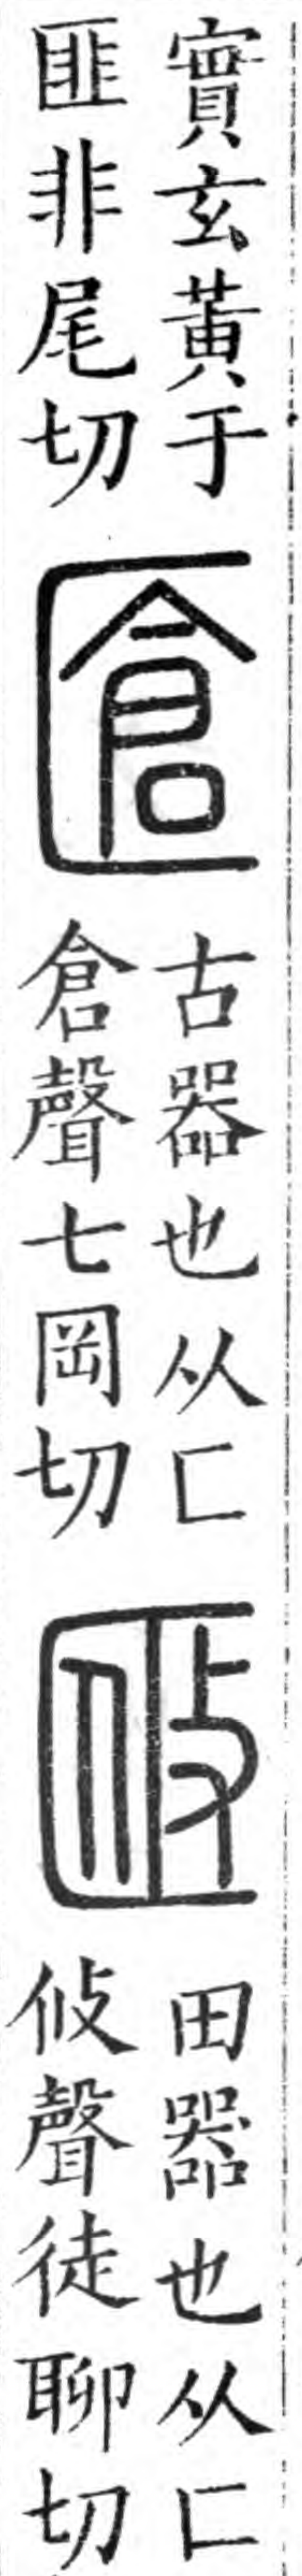 實玄黃于
匪非尾切
𠥐
古器也从匚
倉聲七岡切
田器也从匚
攸聲徒聊切